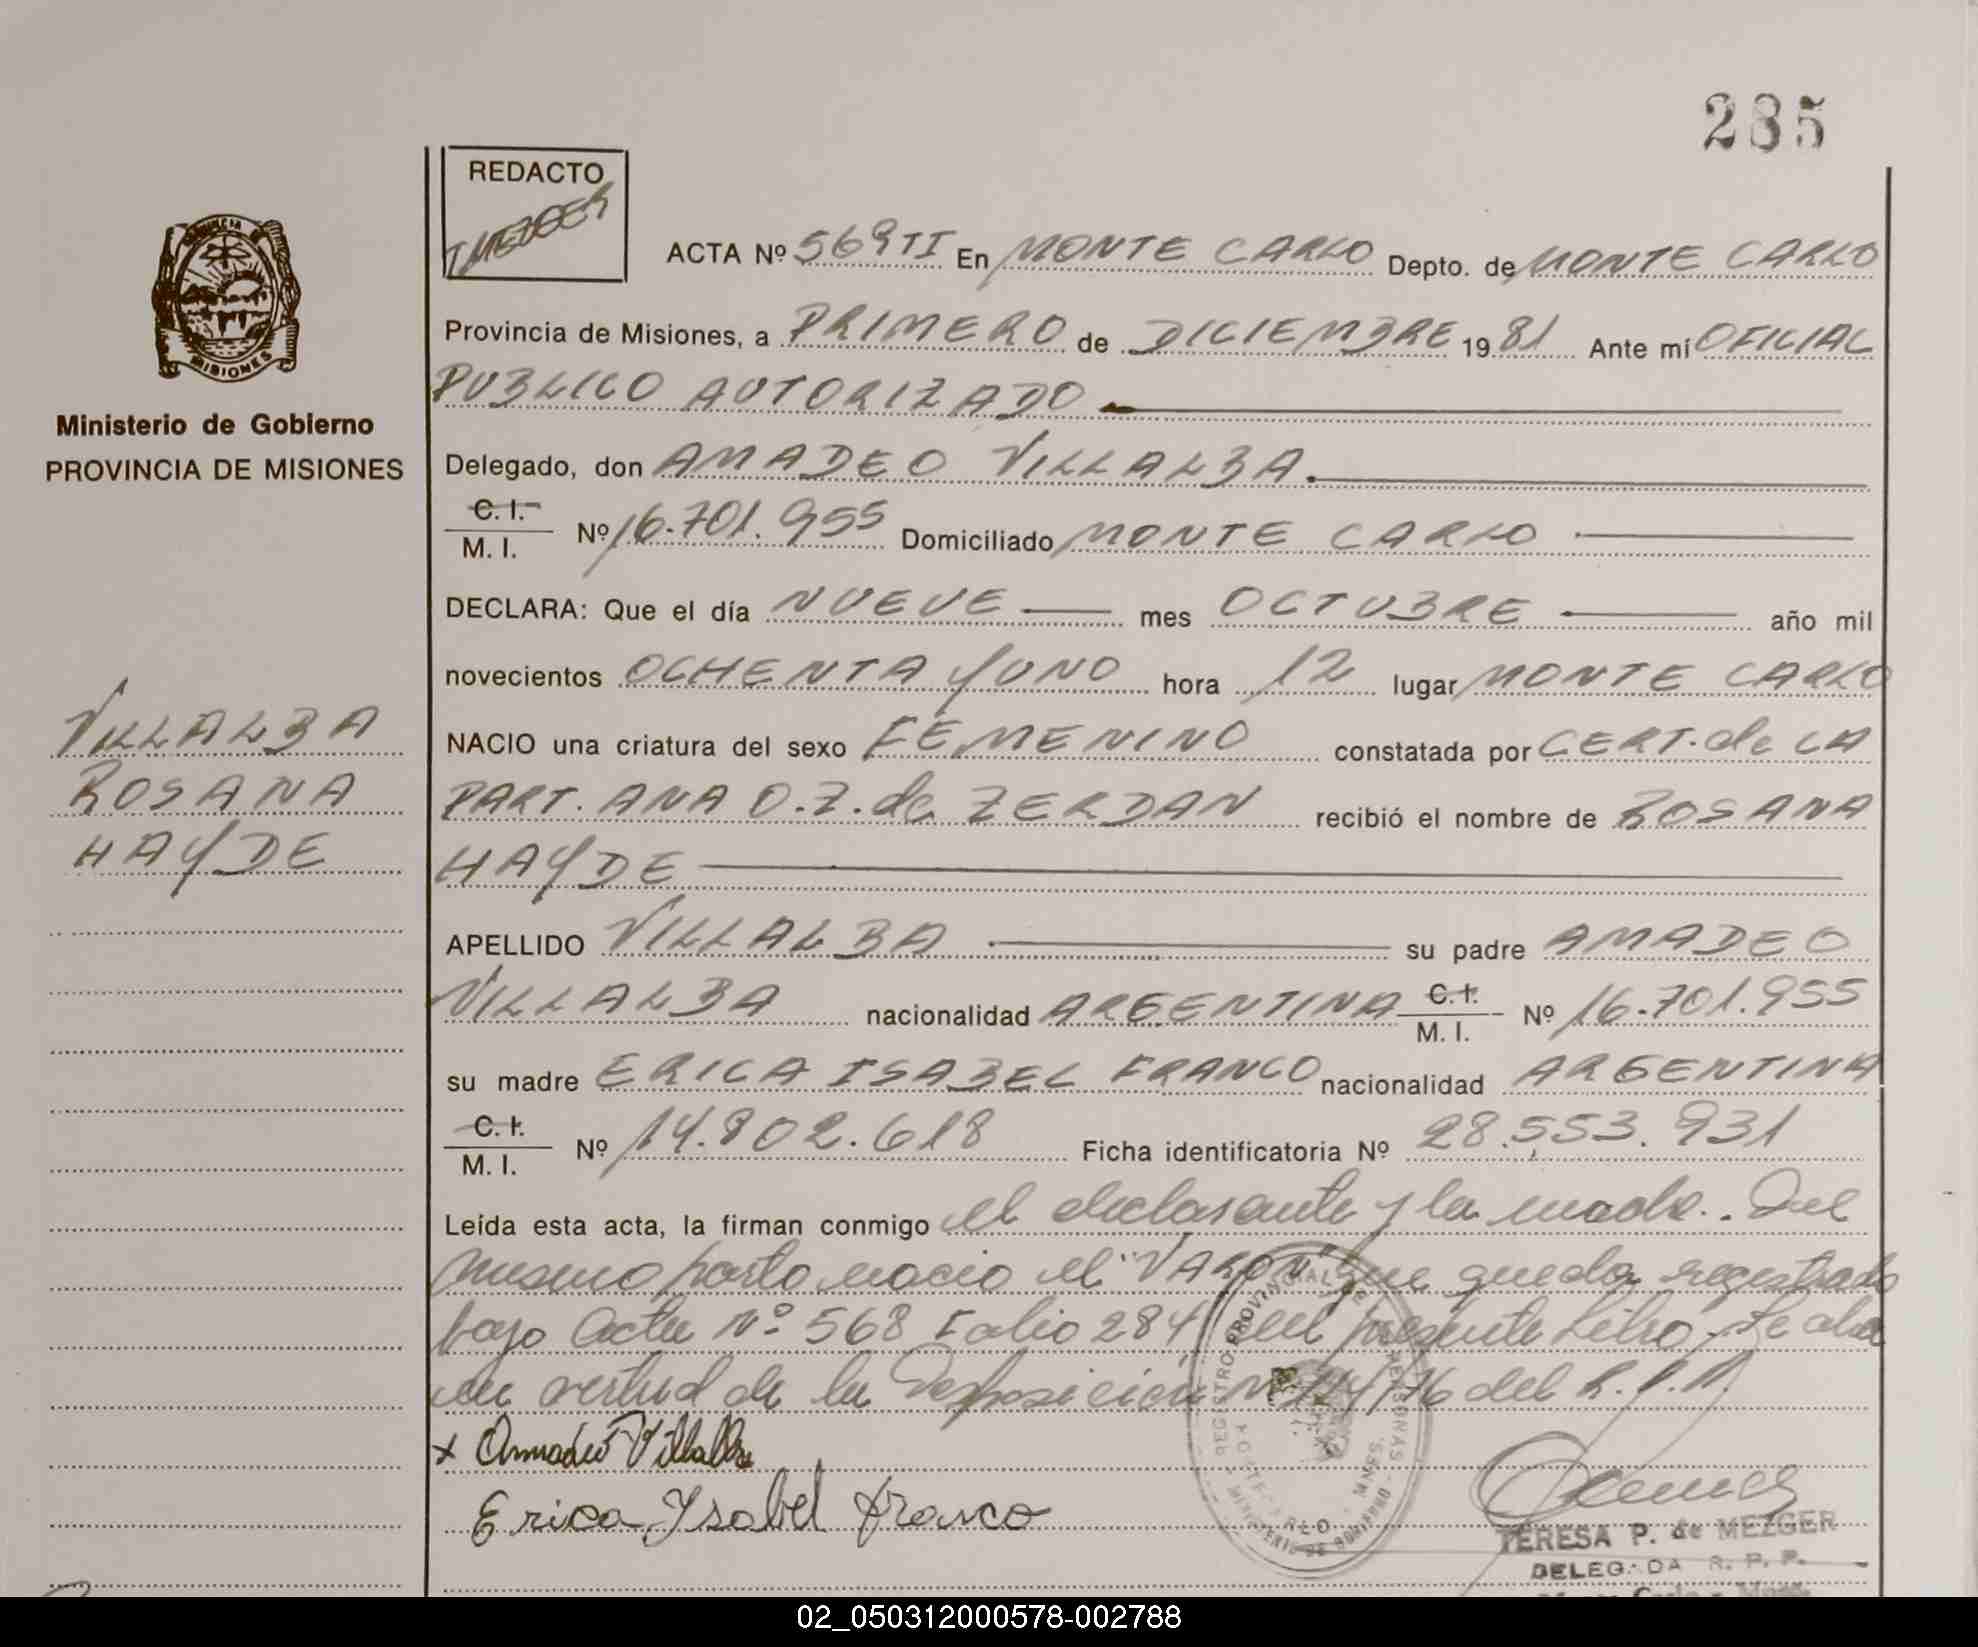 285
REDACTO
TMEZGER
ACTA Nº 569TI En MONTE CARLO Depto. de MONTE CARLO
Provincia de Misiones, a PRIMERO de DICIEMBRE 1981 Ante mí OFICIAL
PUBLICO AUTORIZADO
Ministerio de Gobierno
PROVINCIA DE MISIONES
Delegado, don AMADEO VILLALBA.
C. I.
M. I. Nº 16.701.955 Domiciliado MONTE CARLO
DECLARA: Que el día NUEVE mes OCTUBRE año mil
novecientos OCHENTA Y UNO hora 12 lugar MONTE CARLO
VILLALBA
ROSANA
HAYDE
NACIO una criatura del sexo FEMENINO constatada por CERT. de LA
PART. ANA O.Z. de ZERDAN recibió el nombre de ROSANA
HAYDE
APELLIDO VILLALBA su padre AMADEO
VILLALBA nacionalidad ARGENTINA C. I. M. I. Nº 16.701.955
su madre ERICA ISABEL FRANCO nacionalidad ARGENTINA
C. I.
M. I. Nº 14.802.618 Ficha identificatoria Nº 28.553.931
Leída esta acta, la firman conmigo el declarante y la madre.. Del
mismo parto nacio el "VARON" que queda registrado
bajo Acta Nº 568 Folio 284 del presente Libro
en virtud de la Disposición Nº 14/76 del R.P.P.
x Amadeo Villalba
Erica Ysabel Franco
REGISTRO PROVINCIAL DE LAS PERSONAS
MONTE CARLO - MNES.
MINISTERIO DE GOBIERNO
MISIONES
TERESA P. de MEZGER
DELEGADA R. P. P.
02_050312000578-002788